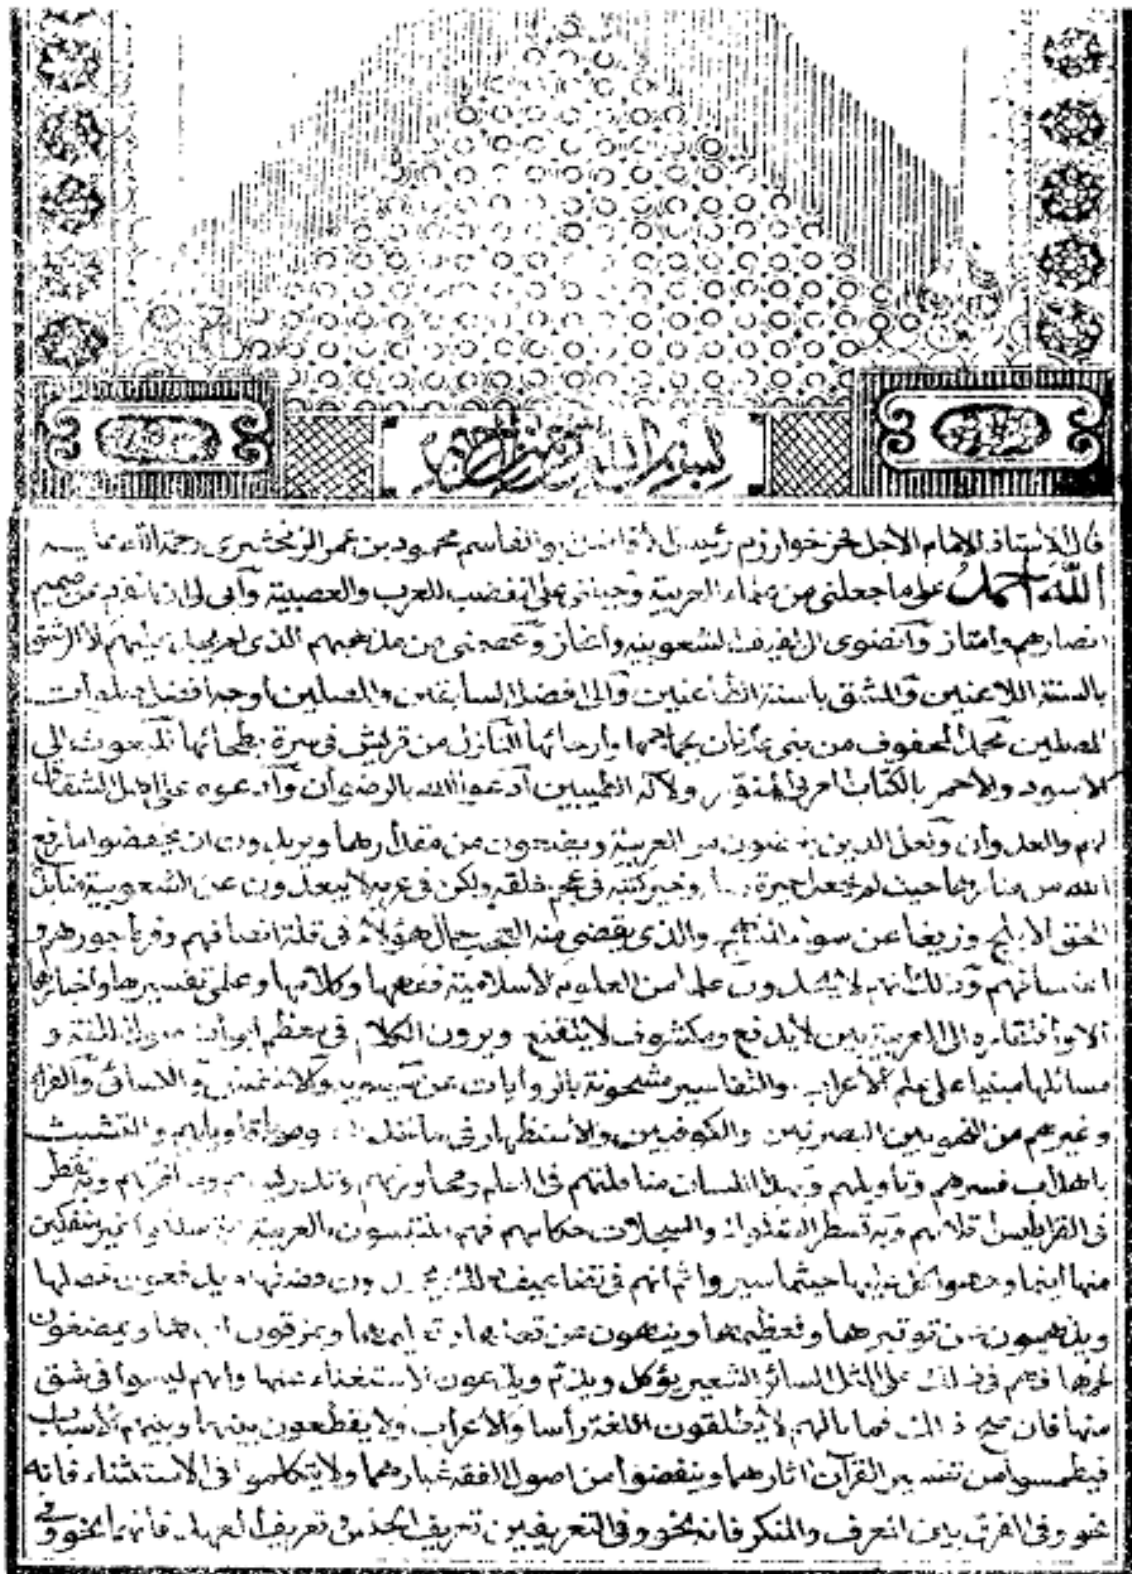 بسم الله الرحمن الرحيم
قال الأستاذ الإمام الأجل فخر خوارزم رئيس الأفاضل أبو القاسم محمود بن عمر الزمخشري رحمة الله عليه
الله أحمد على ما جعلني من علماء العربية وجبلني على الغضب للعرب والعصبية وأبى لي أن أنفرد من صميم
أنصارهم وأمتاز وأنضوى إلى لفيف الشعوبية وأنحاز وعصمني من مذهبهم الذي لم يجد عليهم إلا الرشق
بالسنة اللاعنين والمشق بأسنة الطاعنين وإلى أفضل السابقين والمصلين أوجه أفضل صلوات
المصلين محمد المحفوف من بني عدنان بجماجمها وأرحائها النازل من قريش في سرة بطحائها المبعوث إلى
الأسود والأحمر بالكتاب العربي المنور ولآله الطيبين أدعو الله بالرضوان وأدعوه على أهل الشقاق
لهم والعدوان ولعل الذين يغضون من العربية ويضعون من مقدارها ويريدون أن يخفضوا ما رفع
الله من منارها حيث لم يجعل خيرة رسله وخير كتبه في عجم خلقه ولكن في عربه لا يبعدون عن الشعوبية منابذة
للحق الأبلج وزيغا عن سواء المنهج والذي يقضى منه العجب حال هؤلاء في قلة انصافهم وفرط جورهم و
اعتسافهم وذلك أنهم لا يجدون علما من العلوم الإسلامية فقهها وكلامها وعلمي تفسيرها وأخبارها
الا وافتقاره إلى العربية بين لا يدفع ومكشوف لا يتقنع ويرون الكلام في معظم أبواب أصول الفقه و
مسائلها مبنيا على علم الأعراب والتفاسير مشحونة بالروايات عن سيبويه والأخفش والكسائي والفراء
وغيرهم من النحويين البصريين والكوفيين والاستظهار في مآخذ النصوص بأقاويلهم والتشبث
بأهداب فسرهم وتأويلهم وبهذا اللسان مناقلتهم في العلم ومحاورتهم وتدريسهم ومناظرتهم وبه تقطر
في القراطيس أقلامهم وبه تسطر الصكوك والسجلات حكامهم فهم ملتبسون بالعربية أية سلكوا غير منفكين
منها أينما وجهوا كل عليها حيثما سيروا ثم أنهم في تضاعيف ذلك يجحدون فضلها ويدفعون خصلها
ويذهبون عن توقيرها وتعظيمها وينهون عن تعلمها وتعليمها ويمزقون أديمها ويمضغون
لحمها فهم في ذلك على المثل السائر الشعير يؤكل ويذم ويدعون الاستغناء عنها وأنهم ليسوا في شق
منها فإن صح ذلك فما بالهم لا يطلقون اللغة رأسا والأعراب ولا يقطعون بينهما وبينهم الأسباب
فيطمسوا من تفسير القرآن آثارهما وينفضوا من أصول الفقه غبارهما ولا يتكلموا في الاستثناء فإنه
نحو وفي الفرق بين المعرف والمنكر فإنه نحو وفي التعريفين تعريف الجنس وتعريف العهد فإنهما نحو وفي